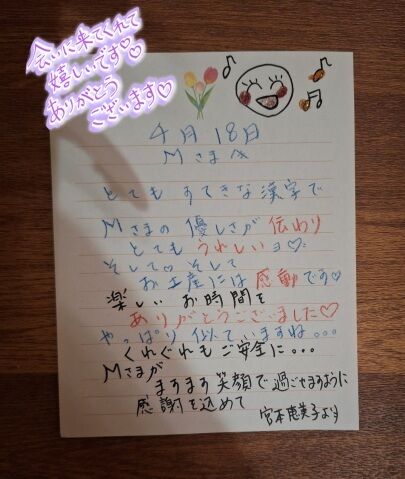 会いに来てくれて
嬉しいです♡♡
ありがとう
ございます♡
4月18日
Mさまへ
とても すてきな漢字で
Mさまの優しさが伝わり
とてもうれしいヨ♡
そして♡ そして
お土産には感動です♡
楽しい お時間を
ありがとうございました♡
やっぱり似ていますね...
くれぐれもご安全に...
Mさまが
ますます笑顔で過ごせますように
感謝を込めて
宮本恵美子より